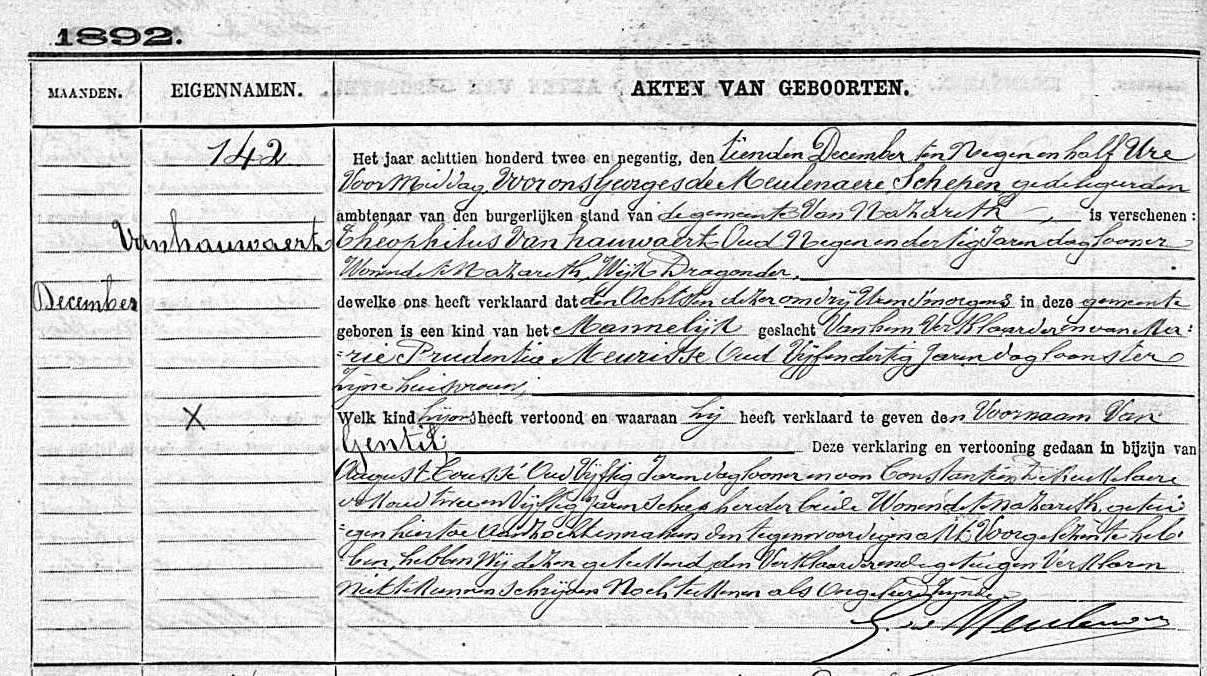 1892.
MAANDEN.
EIGENNAMEN.
AKTEN VAN GEBOORTEN.
142
Vanhauwaert
December
X
Het jaar achttien honderd twee en negentig, den tienden December ten Negen en half Ure
Voor Middag, Voor ons Georges de Meulenaere Schepen, gedelegeerden
ambtenaar van den burgerlijken stand van de gemeente Van Nazareth is verschenen :
Theophilus Van hauwaert Oud Negen en dertig Jaren daglooner
Wonende te Nazareth, Wijk Dragonder.
dewelke ons heeft verklaard dat den Achtsten dezer om drij Uren s'morgens in deze gemeente
geboren is een kind van het Mannelijk geslacht Van hem Verklaarder en van Ma=
=rie Prudentia Meurisse Oud Vijf en dertig Jaren dagloonster
zijne huisvrouw,
Welk kind hij ons heeft vertoond en waaraan hij heeft verklaard te geven den Voornaam Van
Gentil, Deze verklaring en vertooning gedaan in bijzijn van
August Oud Vijftig Jaren daglooner en van Constantin
oud twee en Vijftig Jaren beide Wonende te Nazareth getui=
=gen hiertoe den tegenwoordigen akt Voorgelezen te heb=
ben, hebben Wij dezen geteekend, den Verklaarder en de getuigen Verklaren
niet te kunnen schrijven Noch teekenen als Ongeleerd zijnde
G. de Meulenaere